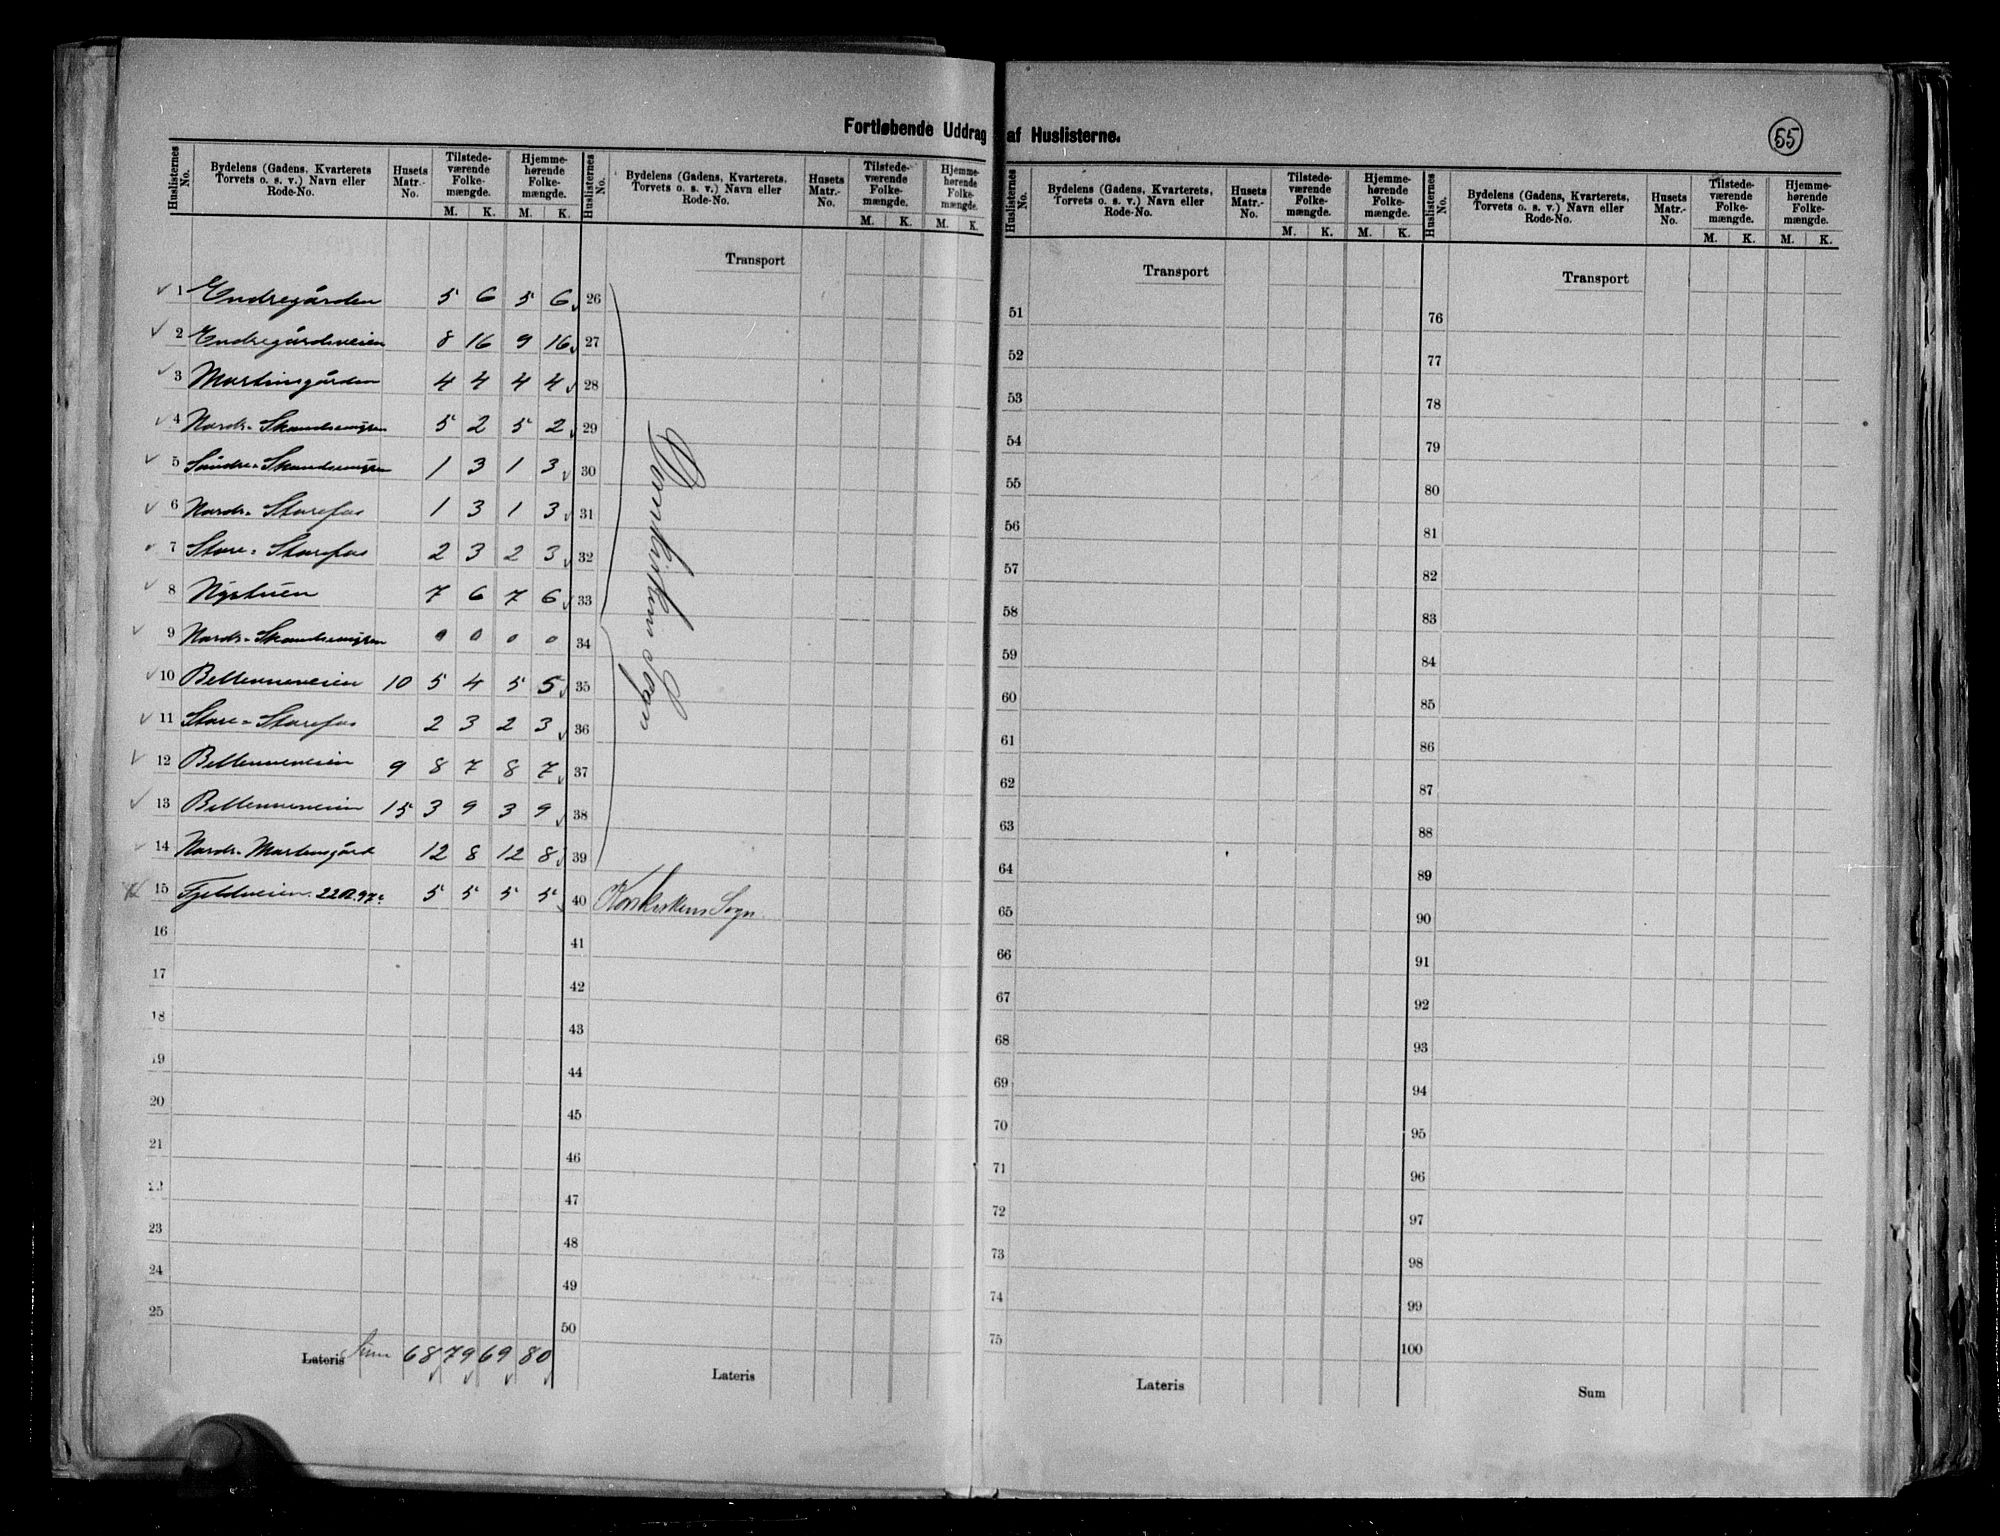 Fortløbende Uddrag af Huslisterne.
55
Huslisternes No. Bydelens (Gadens, Kvarterets Torvets o. s. v.) Navn eller Rode-No. Husets Matr.-No. Tilstede-værende Folke-mængde. Hjemme-hørende Folke-mængde.
M. K. M. K.
1 Endregården 5 6 5 6
2 Endregårdsveien 8 16 9 16
3 Martinsgården 4 4 4 4
4 Nordr. Skandsemyren 5 2 5 2
5 Söndre Skandsemyren 1 3 1 3
6 Nordr. Starefos 1 3 1 3
7 Store Starefos 2 3 2 3
8 Nystuen 7 6 7 6
9 Nordr. Skandsemyren 0 0 0 0
10 Bellevueveien 10 5 4 5 5
11 Store Starefos 2 3 2 3
12 Bellevueveien 9 8 7 8 7
13 Bellevueveien 15 3 9 3 9
14 Nordr. Martensgård 12 8 12 8
15 Fjeldveien 22 97 5 5 5 5
16
17
18
19
20
21
22
23
24
25
Lateris Sum 68 79 69 80
Huslisternes No. Bydelens (Gadens, Kvarterets, Torvets o. s. v.) Navn eller Rode-No. Husets Matr.-No. Tilstede-værende Folke-mængde. Hjemme-hørende Folke-mængde.
M. K. M. K.
Transport
26
27
28
29
30
31
32
33
34
35
36
37
38
39
Domkirkens Sogn
40 Korskirkens Sogn
41
42
43
44
45
46
47
48
49
50
Lateris
Huslisternes No. Bydelens (Gadens, Kvarterets, Torvets o. s. v.) Navn eller Rode-No. Husets Matr.-No. Tilstede-værende Folke-mængde. Hjemme-hørende Folke-mængde.
M. K. M. K.
Transport
51
52
53
54
55
56
57
58
59
60
61
62
63
64
65
66
67
68
69
70
71
72
73
74
75
Lateris
Huslisternes No. Bydelens (Gadens, Kvarterets, Torvets o. s. v.) Navn eller Rode-No. Husets Matr.-No. Tilstede-værende Folke-mængde. Hjemme-hørende Folke-mængde.
M. K. M. K.
Transport
76
77
78
79
80
81
82
83
84
85
86
87
88
89
90
91
92
93
94
95
96
97
98
99
100
Sum